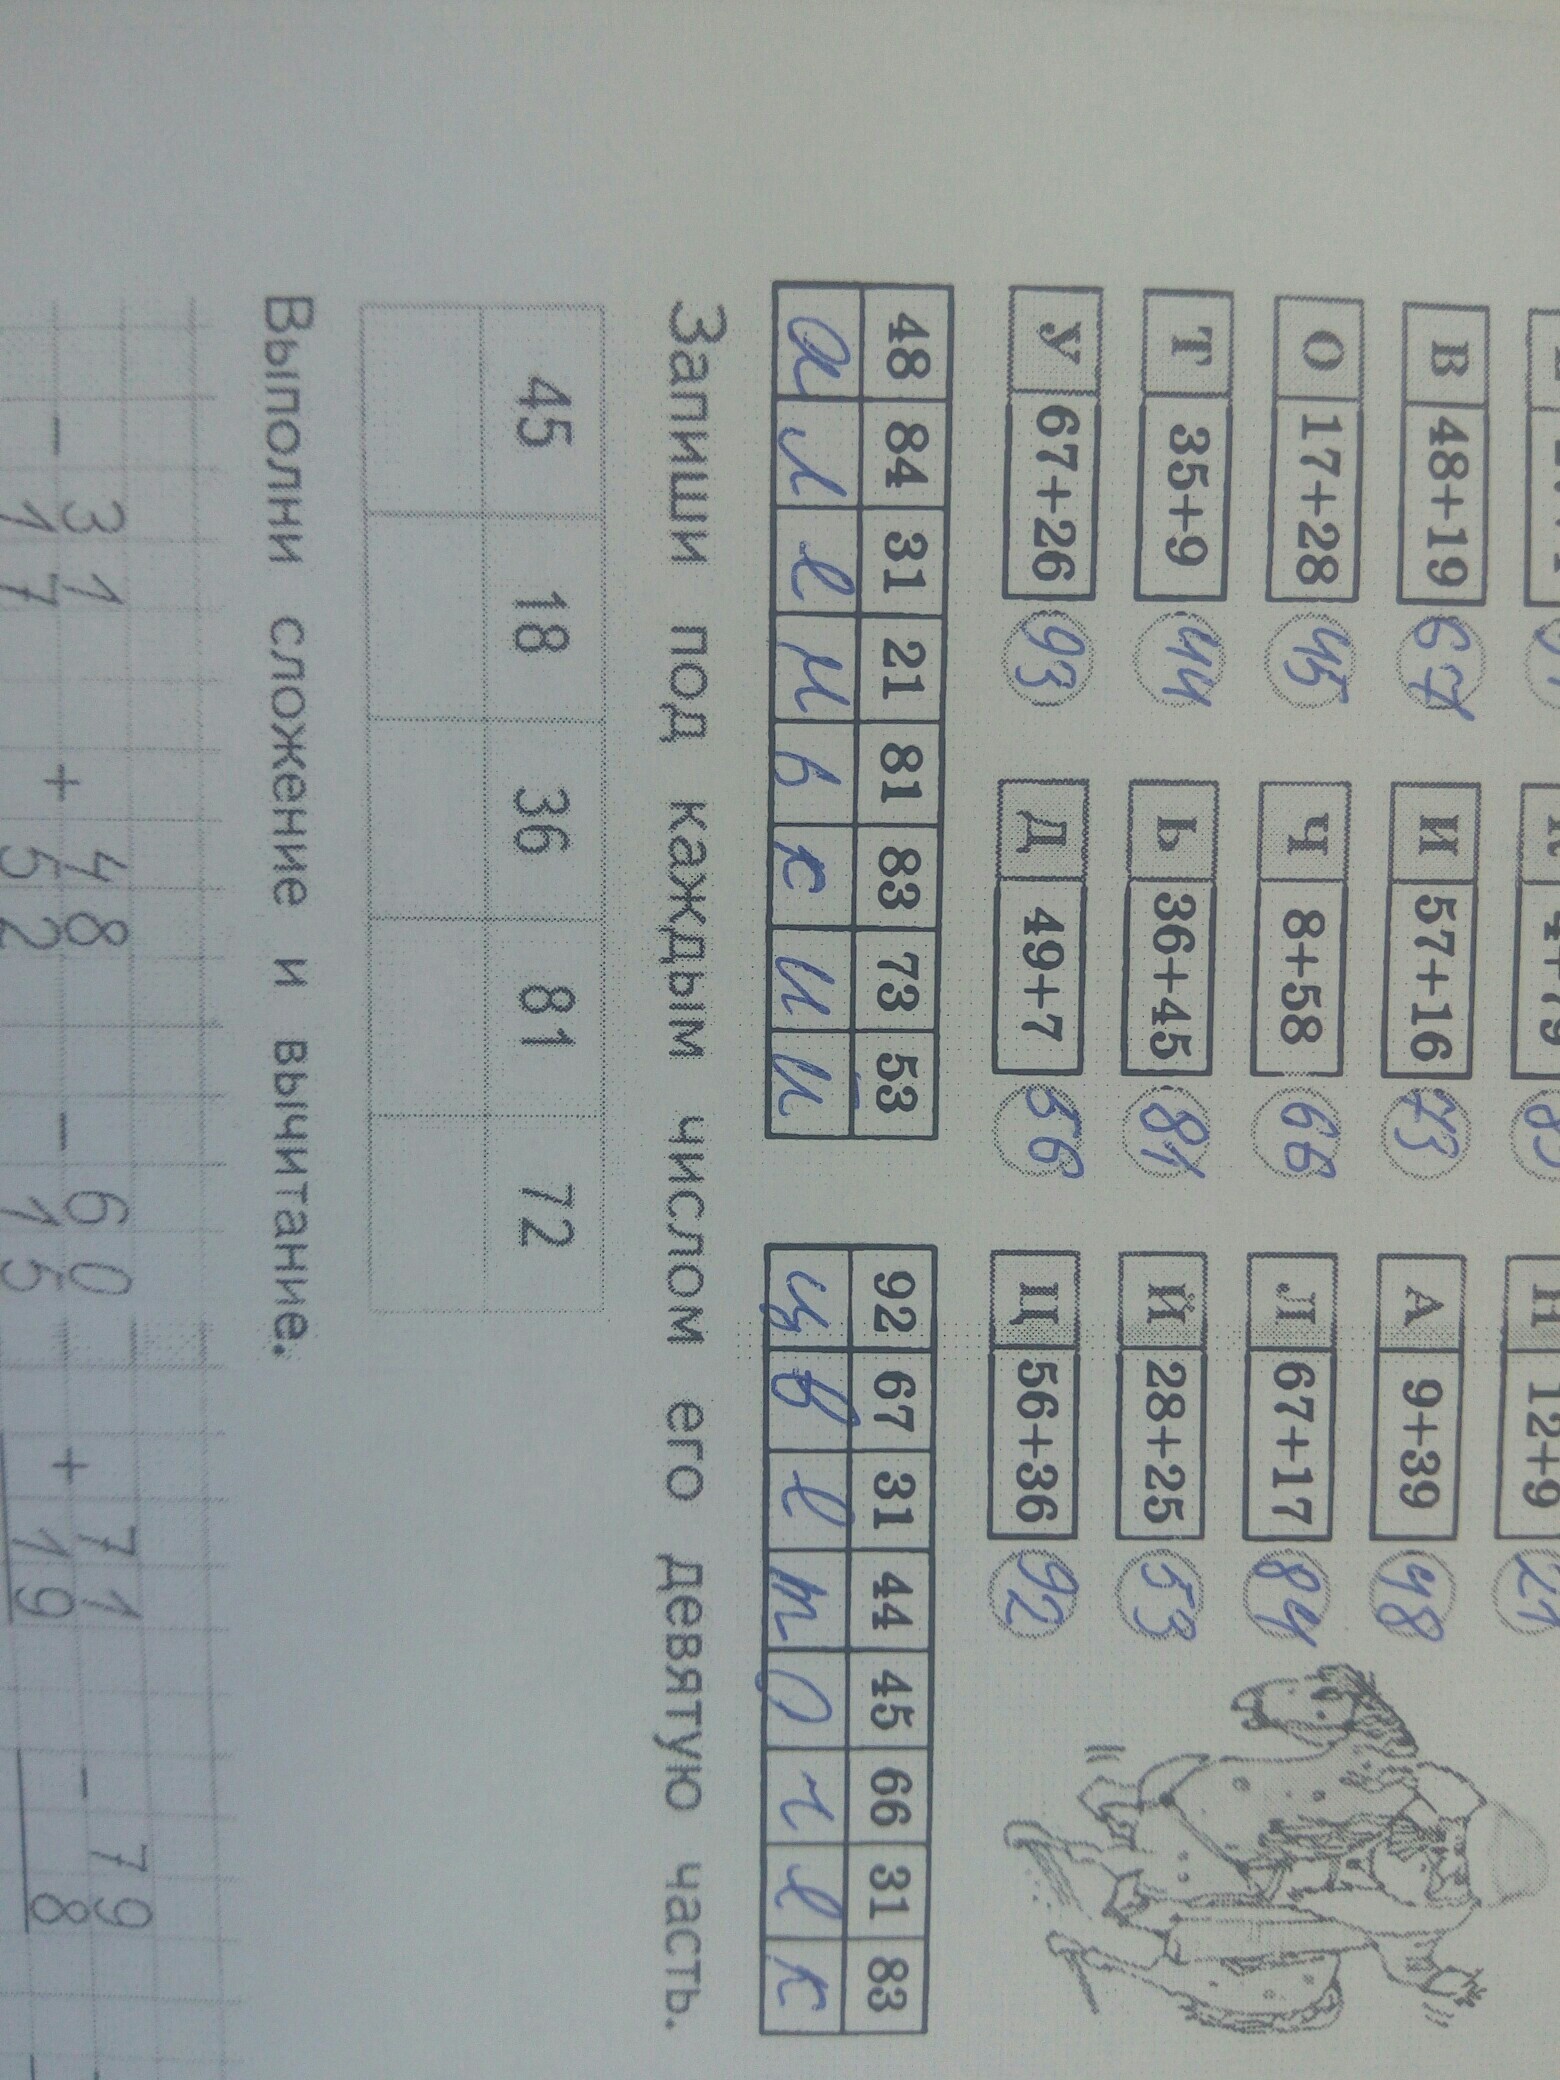 В 48+19 67 И 57+16 73 А 9+39 48
О 17+28 45 Ч 8+58 66 Л 67+17 84
Т 35+9 44 Ь 36+45 81 Й 28+25 53
У 67+26 93 Д 49+7 56 Ц 56+36 92
48 84 31 21 81 83 73 53 92 67 31 44 45 66 31 83
а л е н ь к и й ц в е т о ч е к
Запиши под каждым числом его девятую часть.
45 18 36 81 72
Выполни сложение и вычитание.
− 31 + 48 − 60 + 71 − 79
17 52 15 19 8